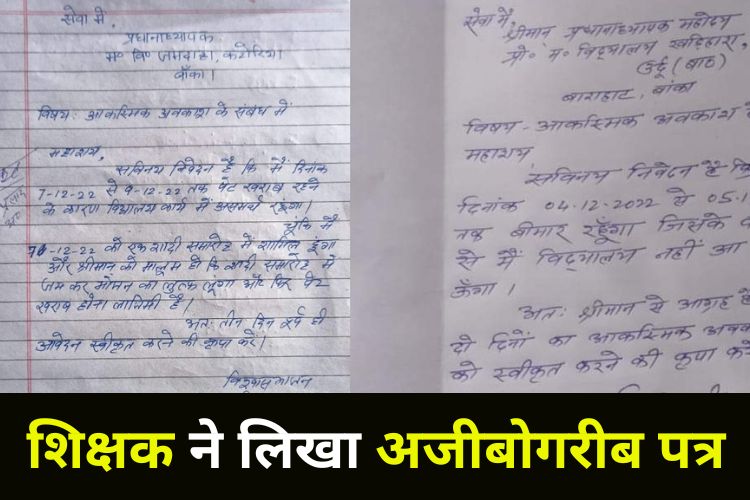 सेवा में,
प्रधानाध्यापक
म० वि० जमदाहा, कटोरिया
बाँका।
विषय: आकस्मिक अवकाश के संबंध में
महाशय,
सविनय निवेदन है कि मैं दिनांक
7-12-22 से 9-12-22 तक पेट खराब रहने
के कारण विद्यालय कार्य में असमर्थ रहूंगा।
चूंकि मैं
-12-22 को एक शादी समारोह में शामिल हूंगा
और श्रीमान को मालूम हो कि शादी समारोह में
जम कर भोजन का लुत्फ लूंगा और फिर पेट
खराब होना लाजिमी है।
अतः तीन दिन पूर्व ही
आवेदन स्वीकृत करने की कृपा करें।
सेवा में,
श्रीमान प्रधानाध्यापक महोदय
प्रो० म० विद्यालय खड़िहारा,
उर्दू (बाठ)
बाराहाट, बांका
विषय - आकस्मिक अवकाश
महाशय
सविनय निवेदन है कि
दिनांक 04.12.2022 से 05.1
तक बीमार रहूँगा जिसके
से मैं विद्यालय नहीं आ
ऊँगा।
अतः श्रीमान से आग्रह है
दो दिनों का आकस्मिक अवक
को स्वीकृत करने की कृपा करें
शिक्षक ने लिखा अजीबोगरीब पत्र